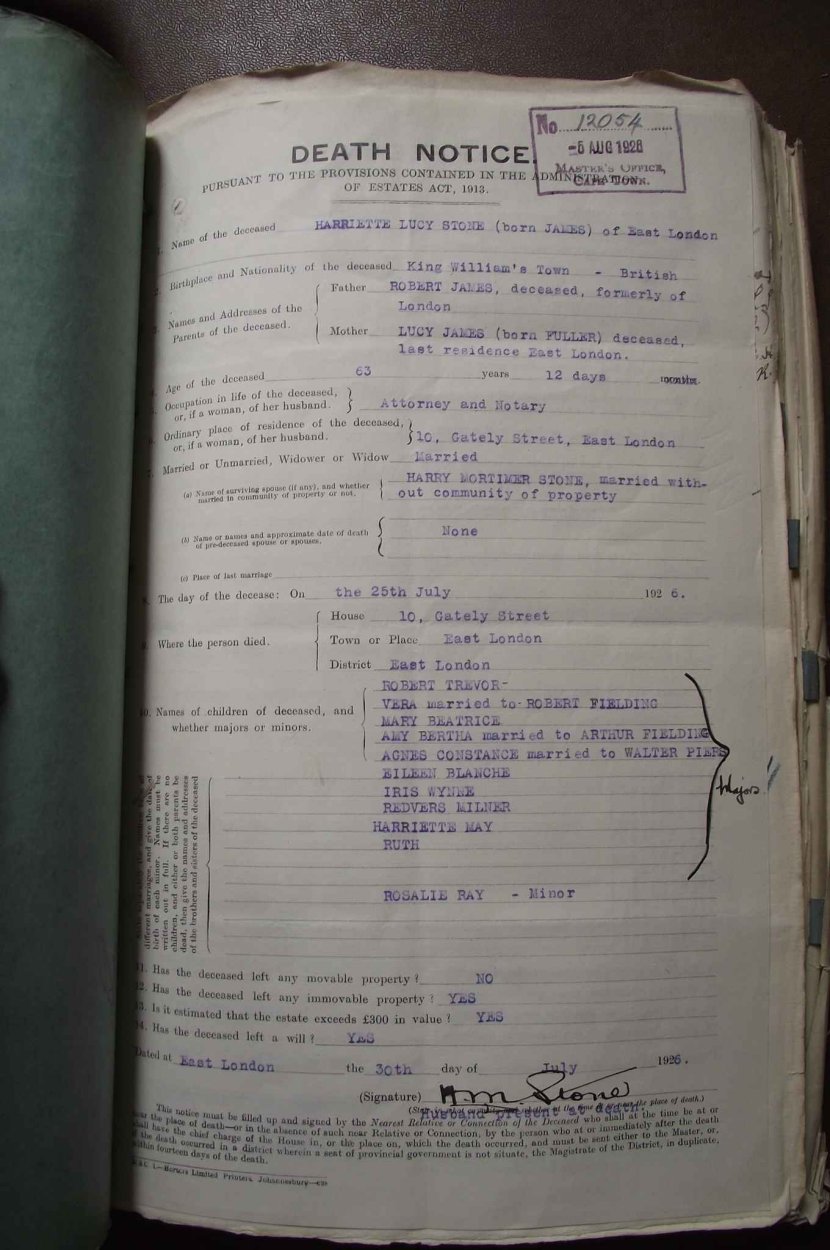 No 12054
-5 AUG 1926
MASTER'S OFFICE,
CAPE TOWN.
DEATH NOTICE.
PURSUANT TO THE PROVISIONS CONTAINED IN THE ADMINISTRATION
OF ESTATES ACT, 1913.
1. Name of the deceased HARRIETTE LUCY STONE (born JAMES) of East London
2. Birthplace and Nationality of the deceased King William's Town - British
3. Names and Addresses of the Parents of the deceased.
Father ROBERT JAMES, deceased, formerly of
London
Mother LUCY JAMES (born FULLER) deceased,
last residence East London.
4. Age of the deceased 63 years 12 days months.
5. Occupation in life of the deceased,
or, if a woman, of her husband. Attorney and Notary
6. Ordinary place of residence of the deceased,
or, if a woman, of her husband. 10, Gately Street, East London
7. Married or Unmarried, Widower or Widow Married
(a) Name of surviving spouse (if any), and whether HARRY MORTIMER STONE, married with-
married in community of property or not. out community of property
(b) Name or names and approximate date of death None
of pre-deceased spouse or spouses.
(c) Place of last marriage
8. The day of the decease: On the 25th July 192 6.
House 10, Gately Street
9. Where the person died. Town or Place East London
District East London
ROBERT TREVOR-
VERA married to- ROBERT FIELDING
10. Names of children of deceased, and MARY BEATRICE
whether majors or minors. AMY BERTHA married to ARTHUR FIELDING
AGNES CONSTANCE married to WALTER PIERS
EILEEN BLANCHE
IRIS WYNNE
REDVERS MILNER
HARRIETTE MAY
RUTH
Majors
ROSALIE RAY - Minor
different marriages, and give the date of
birth of each minor. Names must be
written out in full. If there are no
children, and either or both parents be
dead, then give the names and addresses
of the brothers and sisters of the deceased
11. Has the deceased left any movable property? NO
12. Has the deceased left any immovable property? YES
13. Is it estimated that the estate exceeds £300 in value? YES
14. Has the deceased left a will? YES
Dated at East London the 30th day of July 1926.
(Signature) H.M. Stone
Husband present at death.
This notice must be filled up and signed by the Nearest Relative or Connection of the Deceased who shall at the time be at or
near the place of death—or in the absence of such near Relative or Connection, by the person who at or immediately after the death
shall have the chief charge of the House in, or the place on, which the death occurred, and must be sent either to the Master, or,
if the death occurred in a district wherein a seat of provincial government is not situate, the Magistrate of the District, in duplicate,
within fourteen days of the death.
Limited Printers, Johannesburg